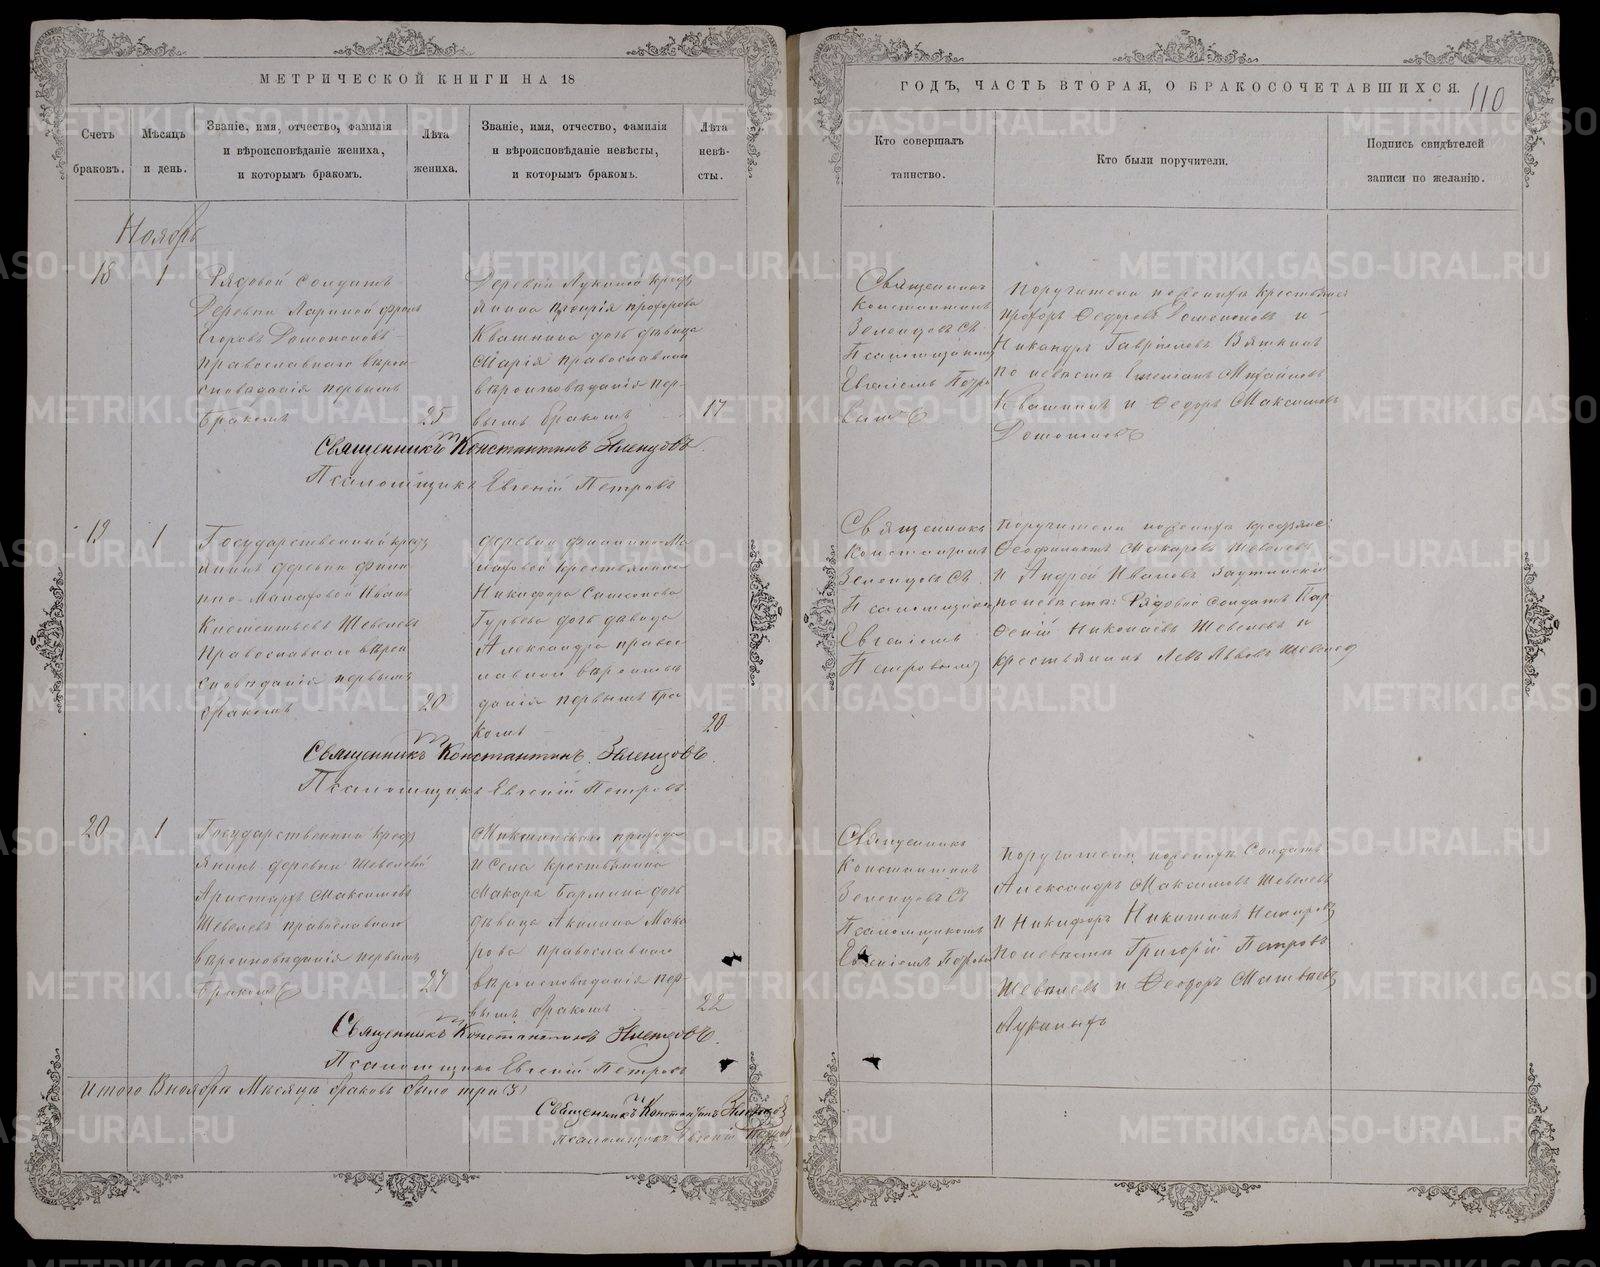 МЕТРИЧЕСКОЙ КНИГИ НА 18
ГОДЪ, ЧАСТЬ ВТОРАЯ, О БРАКОСОЧЕТАВШИХСЯ.
110
Счетъ браковъ.
Мѣсяцъ и день.
Званіе, имя, отчество, фамилія
и вѣроисповѣданіе жениха,
и которымъ бракомъ.
Лѣта жениха.
Званіе, имя, отчество, фамилія
и вѣроисповѣданіе невѣсты,
и которымъ бракомъ.
Лѣта невѣ-
сты.
Кто совершалъ
таинство.
Кто были поручители.
Подпись свидѣтелей
записи по желанію.
Ноябрь
18
1
Рядовой солдатъ
Деревни Лариной
Егоровъ
православнаго вѣрои-
сповѣданія первымъ
бракомъ
25
Деревни Лукиной
Прохорова
Квашнина дочь дѣвица
Марія православнаго
вѣроисповѣданія пер-
вымъ бракомъ
17
Священникъ
Константинъ
Зеленцовъ съ
Псаломщикомъ
Евгеніемъ
Поручители по женихѣ крестьяне
Прохоръ Федоровъ и
Никандръ Гавриловъ Вяткинъ
по невѣстѣ Михайловъ
Квашнинъ и Федоръ Максимовъ
Священникъ Константинъ Зеленцовъ.
Псаломщикъ Евгеній Петровъ
19
1
Государственный
янинъ деревни
Иванъ
Шевелевъ
Православнаго вѣрои
сповѣданія первымъ
бракомъ
20
деревни
крестьянина
Никифора Самсонова
Гурьева дочь дѣвица
Александра правос
лавнаго
данія первымъ бра
комъ
20
Священникъ
Константинъ
Зеленцовъ съ
Псаломщикомъ
Евгеніемъ
Петровымъ
Поручители по женихѣ
Макаровъ Шевелевъ
и Андрей Ивановъ
по невѣстѣ: Рядовой солдатъ Пар
феній Николаевъ Шевелевъ и
крестьянинъ Левъ Львовъ Шевелевъ
Священникъ Константинъ Зеленцовъ.
Псаломщикъ Евгеній Петровъ
20
1
Государственный
янинъ деревни Шевелевой
Аристархъ Максимовъ
Шевелевъ православнаго
вѣроисповѣданія первымъ
бракомъ
24
прихода
и Села крестьянина
Макара дочь
дѣвица Акилина Мака
рова православнаго
вѣроисповѣданія пер-
вымъ бракомъ
22
Священникъ
Константинъ
Зеленцовъ съ
Псаломщикомъ
Евгеніемъ
Поручители по женихѣ Солдатъ
Александръ Максимовъ Шевелевъ
и Никифоръ Никитинъ
по невѣстѣ Григорій Петровъ
Шевелевъ и Федоръ Матвѣевъ
Лукиныхъ
Священникъ Константинъ Зеленцовъ.
Псаломщикъ Евгеній Петровъ
Итого В ноябрѣ Мѣсяцѣ браковъ было три (3)
Священникъ Константинъ Зеленцовъ
Псаломщикъ Евгеній Петровъ
METRIKI.GASO-URAL.RU